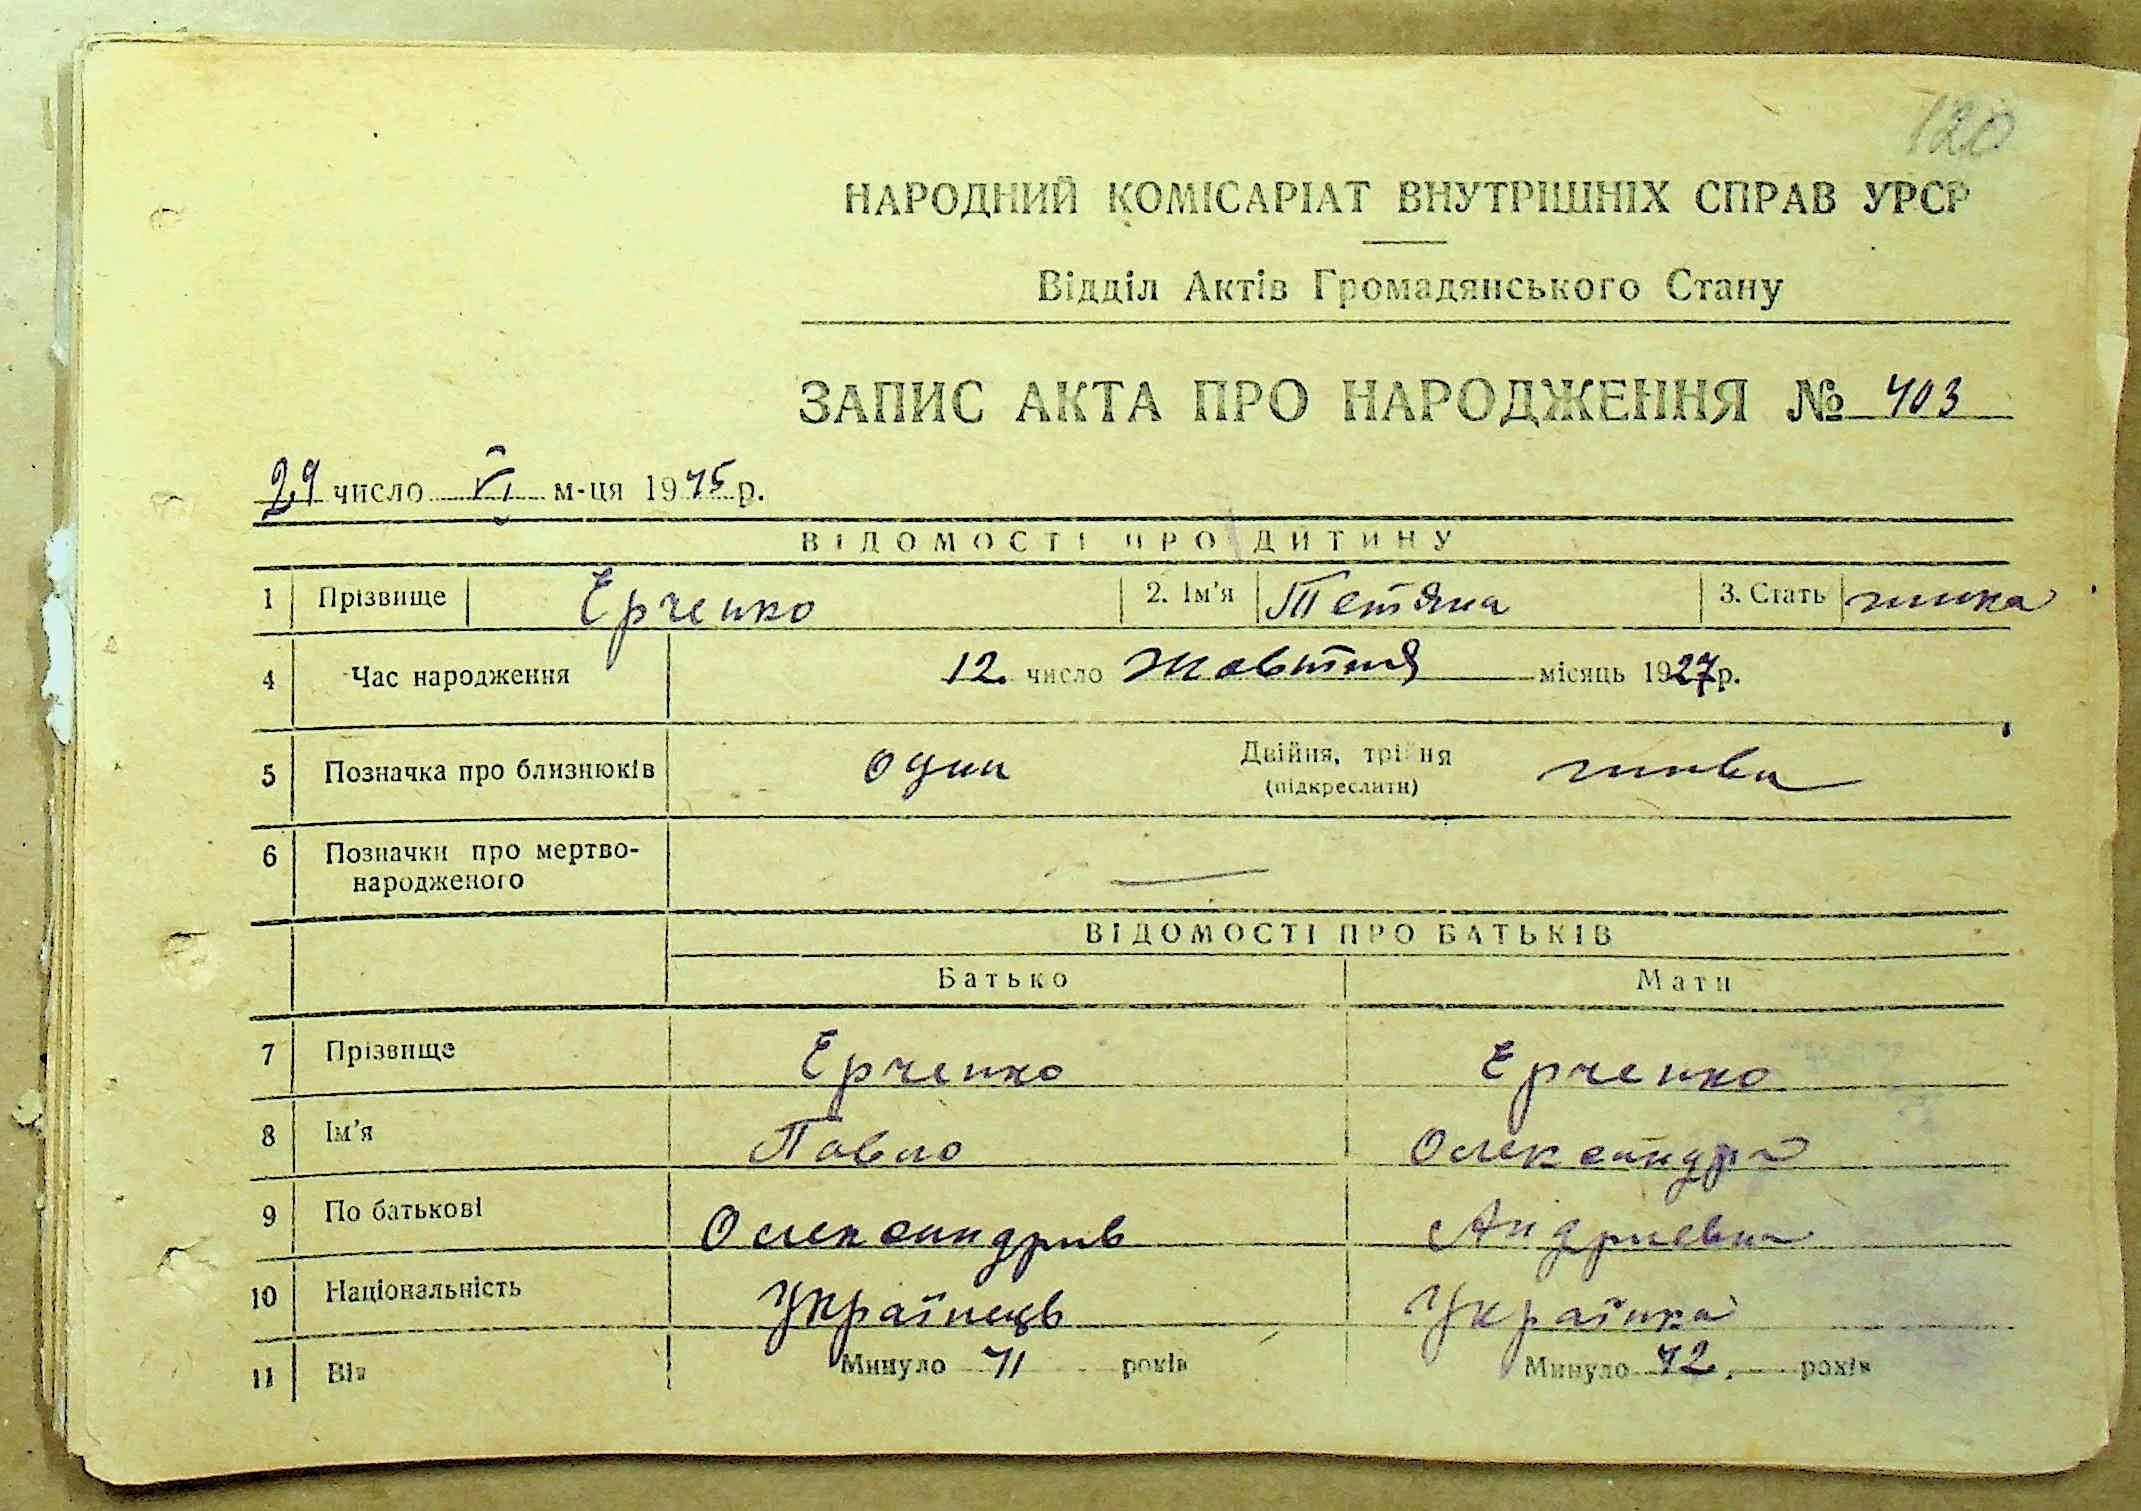 120
НАРОДНИЙ КОМІСАРІАТ ВНУТРІШНІХ СПРАВ УРСР
Відділ Актів Громадянського Стану
ЗАПИС АКТА ПРО НАРОДЖЕННЯ № 403
29 число VI м-ця 1945 р.
ВІДОМОСТІ ПРО ДИТИНУ
1 Прізвище Ерченко 2. Ім'я Тетяна 3. Стать жінка
4 Час народження 12 число Жовтня місяць 1927 р.
5 Позначка про близнюків один Двійня, трійня жива
(підкреслити)
6 Позначки про мертво-
народженого
ВІДОМОСТІ ПРО БАТЬКІВ
Батько Мати
7 Прізвище Ерченко Ерченко
8 Ім'я Павло Олександра
9 По батькові Олександрів Андриевна
10 Національність Українець Українка
11 Вік Минуло 41 років Минуло 42 років